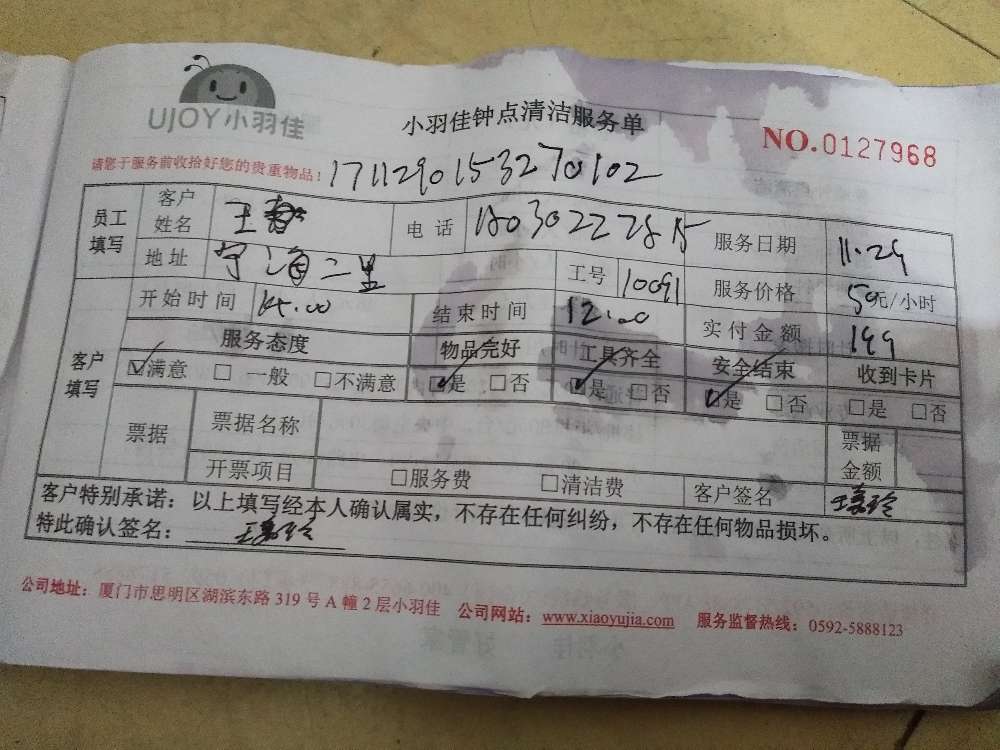 UJOY小羽佳
小羽佳钟点清洁服务单
NO.0127968
请您于服务前收拾好您的贵重物品: 1711290153270102
员工填写 客户姓名 王 电话 服务日期 11.29
地址 宁海二里 工号 10091 服务价格 50元/小时
客户填写 开始时间 结束时间 12:00 实付金额 199
服务态度 物品完好 工具齐全 安全结束 收到卡片
☑满意 □一般 □不满意 ☑是 □否 ☑是 □否 ☑是 □否 □是 □否
票据 票据名称 票据金额
开票项目 □服务费 □清洁费 客户签名
客户特别承诺：以上填写经本人确认属实，不存在任何纠纷，不存在任何物品损坏。
特此确认签名：
公司地址：厦门市思明区湖滨东路 319 号 A 幢 2 层小羽佳 公司网站：www.xiaoyujia.com 服务监督热线：0592-5888123